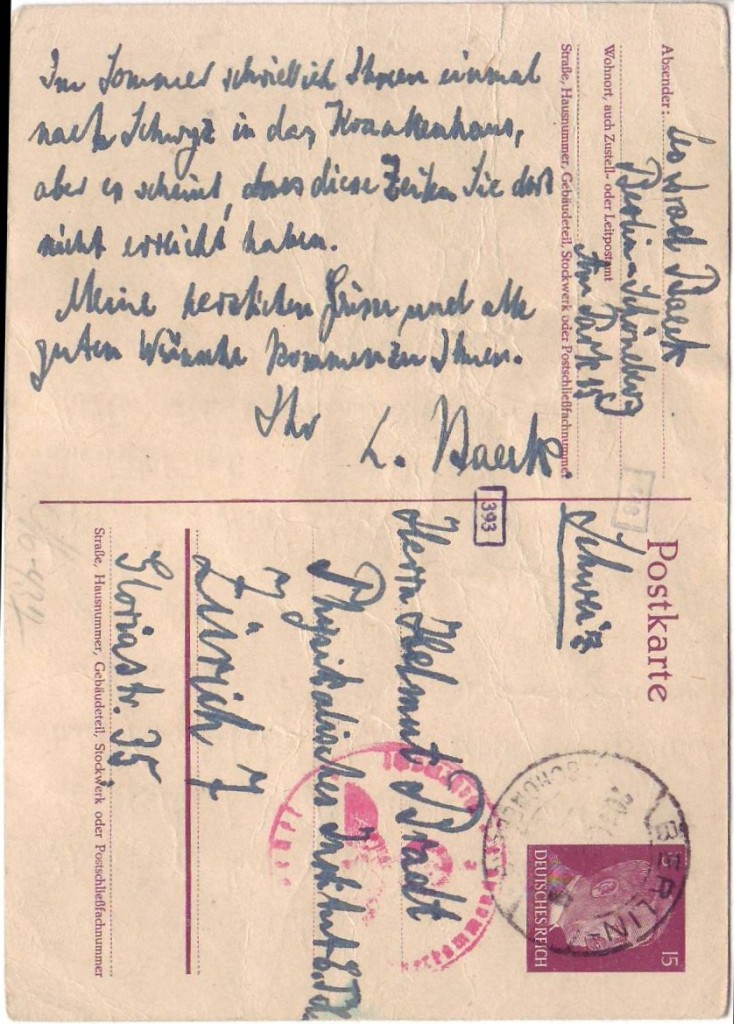 Im Sommer schrieb ich Ihnen einmal
nach Schwyz in das Krankenhaus,
aber es scheint, dass diese Zeilen Sie dort
nicht erreicht haben.
Meine herzlichen Grüsse und alle
guten Wünsche kommen zu Ihnen.
Ihr
L. Baeck.
Absender: Leo Israel Baeck
Berlin-Schöneberg
Wohnort, auch Zustell- oder Leitpostamt
Am Park 15
Straße, Hausnummer, Gebäudeteil, Stockwerk oder Postschließfachnummer
Postkarte
Schweiz
393
Herrn Helmut Bradt
Physikalisches Institut E.T.H.
Zürich 7
Gloriastr. 35
Straße, Hausnummer, Gebäudeteil, Stockwerk oder Postschließfachnummer
BERLIN
SCHÖNEBERG
15
DEUTSCHES REICH